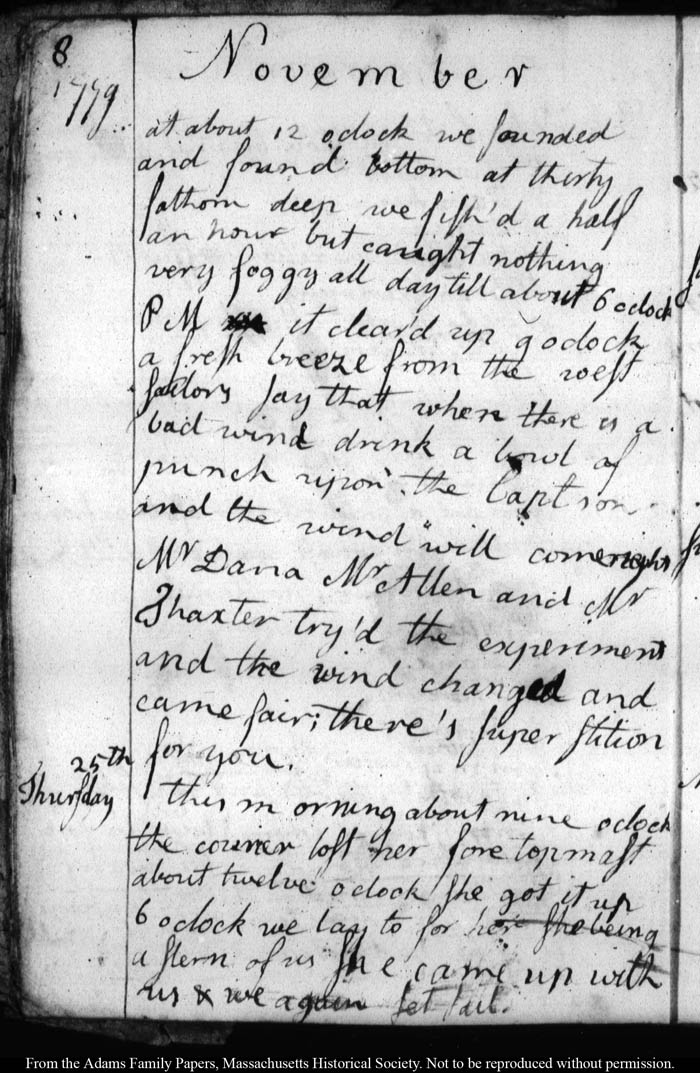 8
November
1779
at about 12 oclock we sounded
and found bottom at thirty
fathom deep we fish'd a half
an hour but caught nothing
very foggy all day till about 6 oclock
PM it cleard up 9 oclock
a fresh breeze from the west
sailors say that when there is a
bad wind drink a bowl of
punch upon the Capt son
and the wind will come right
Mr Dana Mr Allen and Mr
Thaxter try'd the experiment
and the wind changed and
came fair; there's superstition
for you.
25th
Thursday
this morning about nine oclock
the courier lost her fore topmast
about twelve oclock she got it up
6 oclock we lay to for her she being
a stern of us she came up with
us & we again set sail.
From the Adams Family Papers, Massachusetts Historical Society. Not to be reproduced without permission.